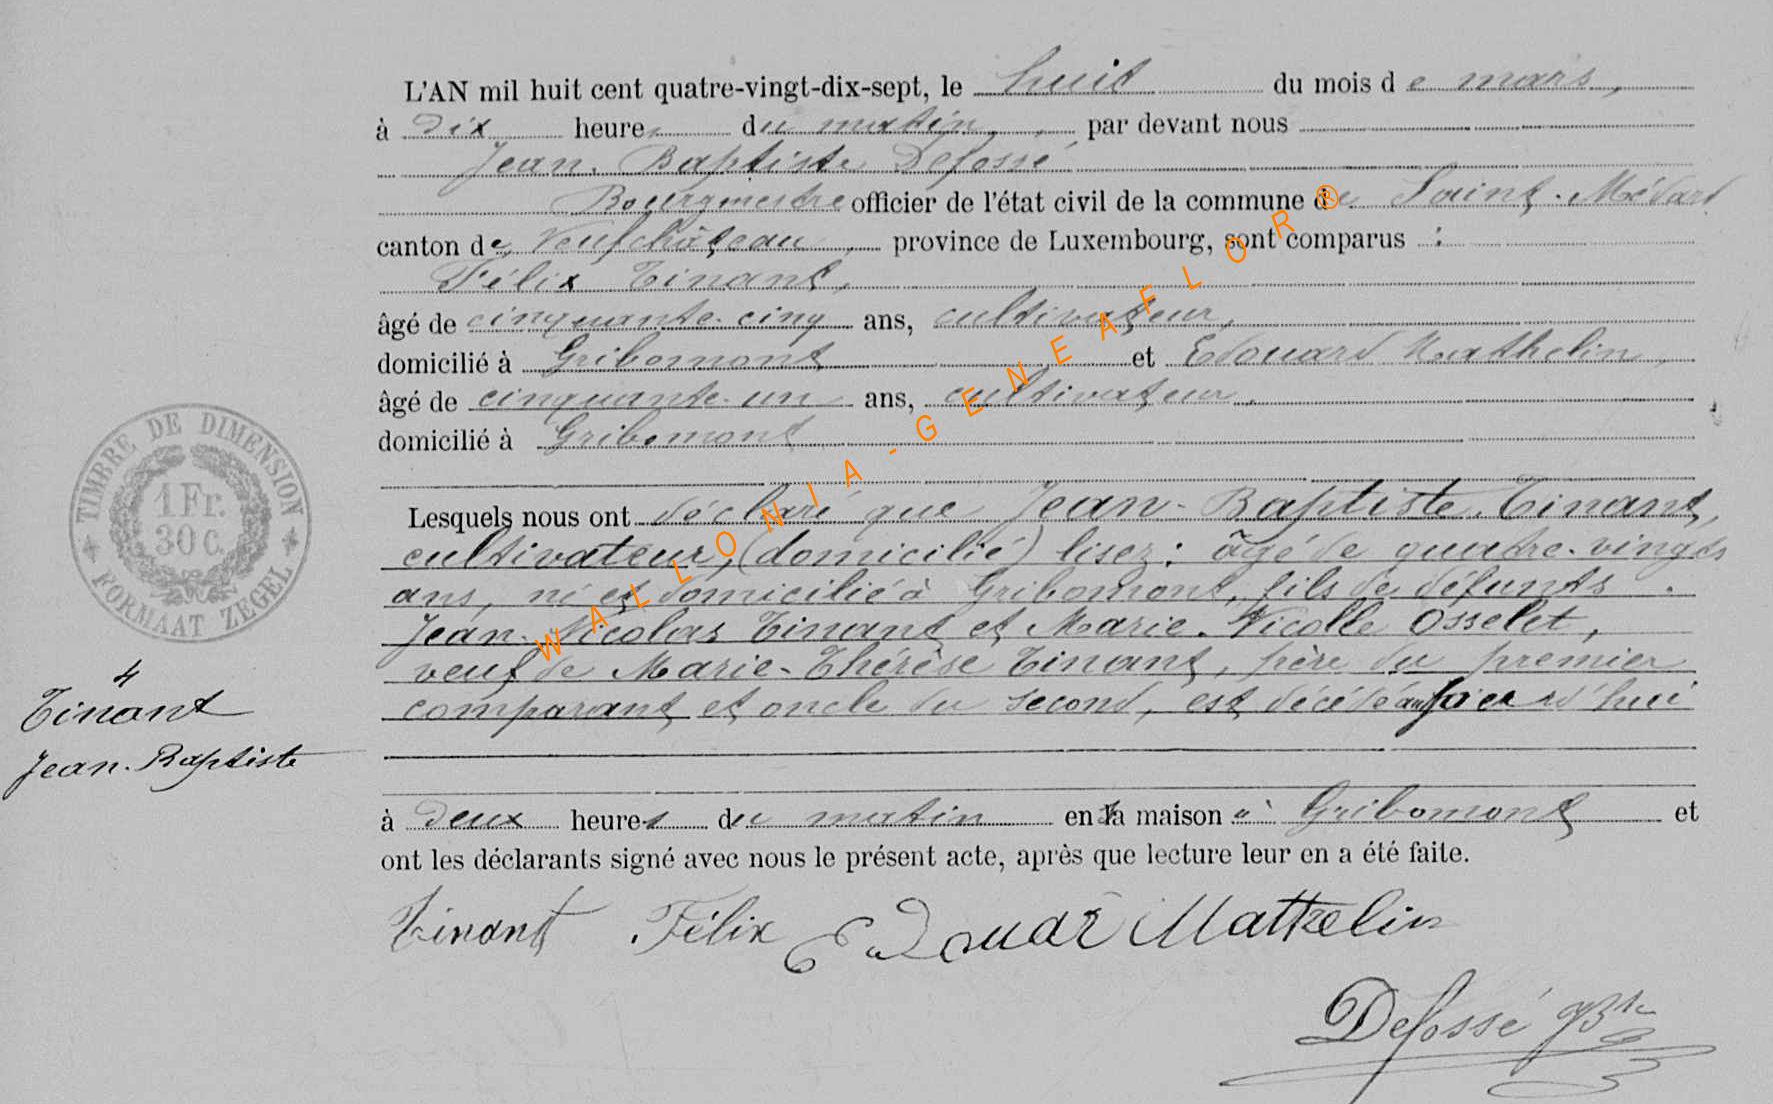 L'AN mil huit cent quatre-vingt-dix-sept, le huit du mois de mars,
à dix heures du matin, par devant nous
Jean-Baptiste Defossé
Bourgmestre officier de l'état civil de la commune de Saint-Médard
canton de Neufchâteau, province de Luxembourg, sont comparus :
Félix Tinant,
âgé de cinquante-cinq ans, cultivateur,
domicilié à Gribomont et Edouard Mathelin,
âgé de cinquante-un ans, cultivateur,
domicilié à Gribomont
Lesquels nous ont déclaré que Jean-Baptiste Tinant,
cultivateur, (domicilié) lisez : âgé de quatre-vingts
ans, né et domicilié à Gribomont, fils de défunts
Jean-Nicolas Tinant et Marie-Nicolle Osselet,
veuf de Marie-Thérèse Tinant, père du premier
comparant et oncle du second, est décédé aujourd'hui
à deux heures du matin en la maison à Gribomont et
ont les déclarants signé avec nous le présent acte, après que lecture leur en a été faite.
Tinant Félix Edouard Mathelin
Defossé JBte
4
Tinant
Jean-Baptiste
TIMBRE DE DIMENSION
1 Fr.
30 c.
FORMAAT ZEGEL
WALLONIA-GENEAFLOR®